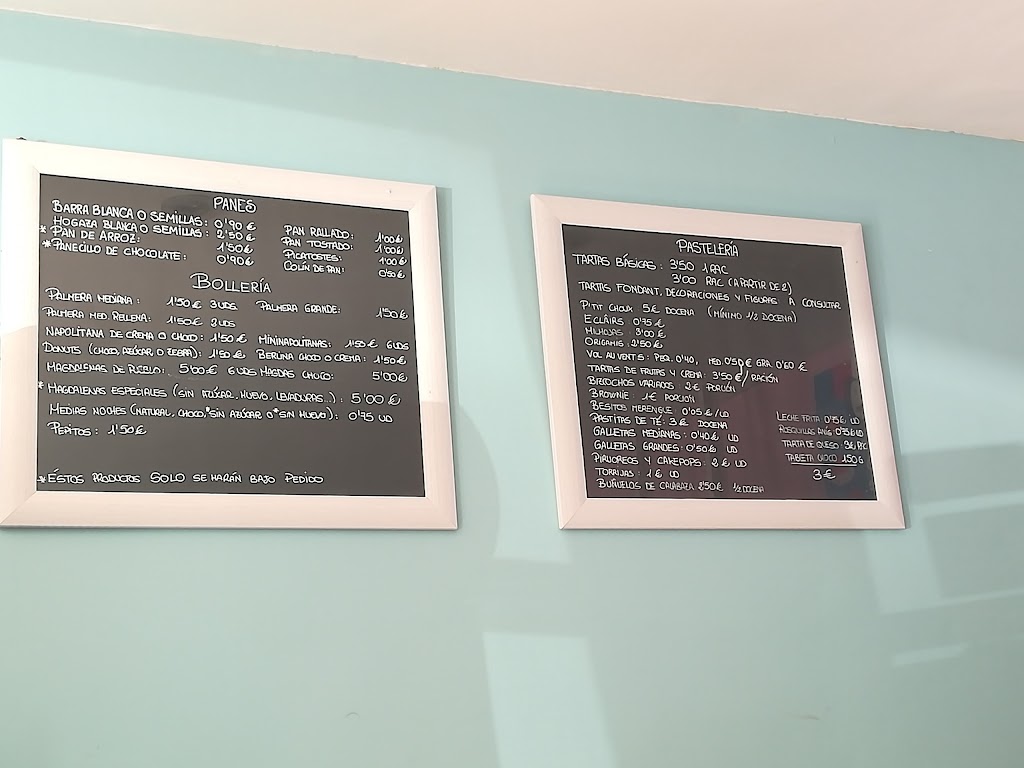 PANES
BARRA BLANCA O SEMILLAS: 0'90 €
HOGAZA BLANCA O SEMILLAS: 2'50 €
* PAN DE ARROZ: 1'50€
* PANECILLO DE CHOCOLATE: 0'90€
PAN RALLADO: 1'00€
PAN TOSTADO: 1'00€
PICATOSTES: 1'00€
COLÍN DE PAN: 0'50€
BOLLERÍA
PALMERA MEDIANA: 1'50€ 3 UDS PALMERA GRANDE: 1'50€
PALMERA MED. RELLENA: 1'50€ 2 UDS
NAPOLITANA DE CREMA O CHOCO: 1'50€ MININAPOLITANAS: 1'50€ 6 UDS
DONUTS (CHOCO, AZÚCAR O ZEBRA): 1'50€ BERLINA CHOCO O CREMA: 1'50€
MAGDALENAS DE PUEBLO: 5'00€ 6 UDS MAGDAS CHOCO: 5'00€
* MAGDALENAS ESPECIALES (SIN AZÚCAR, HUEVO, LEVADURAS...): 5'00€
MEDIAS NOCHES (NATURAL, CHOCO, *SIN AZÚCAR O *SIN HUEVO): 0'75 UD
PEPITOS: 1'50€
* ÉSTOS PRODUCTOS SOLO SE HARÁN BAJO PEDIDO
PASTELERÍA
TARTAS BÁSICAS: 3'50 1 RAC
3'00 RAC (A PARTIR DE 2)
TARTAS FONDANT, DECORACIONES Y FIGURAS A CONSULTAR
P'TIT CHOUX 5€ DOCENA (MÍNIMO 1/2 DOCENA)
ECLAIRS 0'75 €
MILHOJAS 3'00 €
ORIGAMIS: 2'50€
VOL AU VENTS: PEQ. 0'40, MED. 0'50€ GRA 0'60 €
TARTAS DE FRUTAS Y CREMA: 3'50€/RACIÓN
BIZCOCHOS VARIADOS 2€ PORCIÓN
BROWNIE: 1€ PORCIÓN
BESITOS MERENGUE: 0'05€/UD
PASTITAS DE TÉ: 3€ DOCENA
GALLETAS MEDIANAS: 0'40€ UD
GALLETAS GRANDES: 0'50€ UD
PIRUOREOS Y CAKEPOPS: 2€ UD
TORRIJAS: 1€ UD
BUÑUELOS DE CALABAZA 2'50€ 1/2 DOCENA
LECHE FRITA 0'75€ UD
ROSQUILLAS 0'75€ UD
TARTA DE QUESO 3€
TABLETA CHOCO 150G
3€